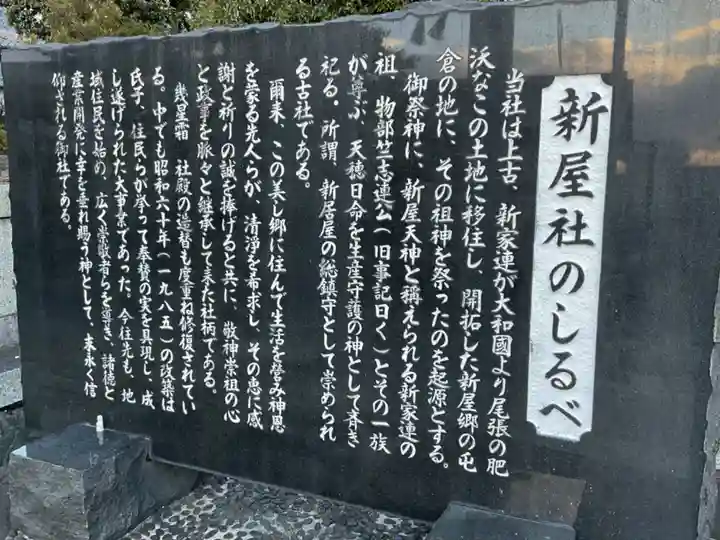 新屋社のしるべ
当社は上古、新家連が大和國より尾張の肥
沃なこの土地に移住し、開拓した新屋郷の屯
倉の地に、その祖神を祭ったのを起源とする。
御祭神に、新屋天神と称えられる新家連の
祖、物部竺志連公(旧事記曰く)とその一族
が尊ぶ、天穂日命を生産守護の神として斉き
祀る・所謂、新居屋の総鎮守として崇められ
る古社である。
爾来、この美し郷に住んで生活を営み神恩
を蒙る先人らが、清浄を希求し、その恵に感
謝と祈りの誠を捧げると共に、敬神崇祖の心
と政事を脈々と継承して来た社柄である。
幾星霜、社殿の造替も度重ね修復されてい
る。中でも昭和六十年(一九八五)の改築は
氏子、住民らが挙って奉賛の実を具現し、成
し遂げられた大事業であった。今住先も、地
域住民を始め、広く崇敬者らを導き、諸徳と
産業開発に幸を垂れ賜う神として、末永く信
仰される御社である。